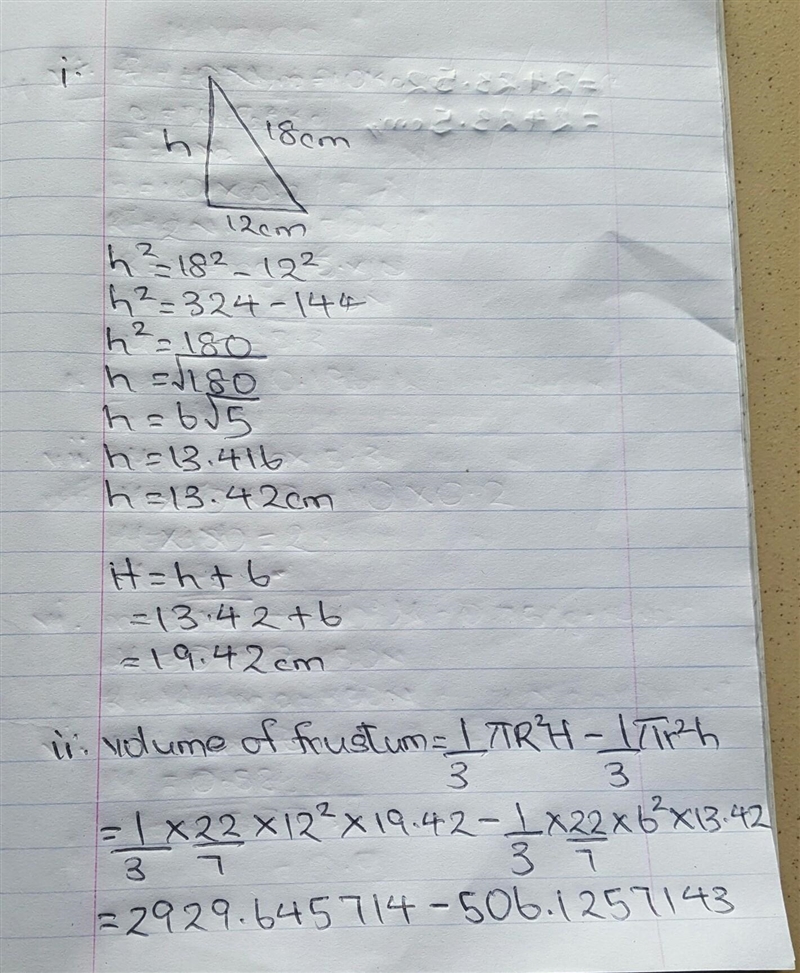 i.
h
18cm
12cm
h² = 18² - 12²
h² = 324 - 144
h² = 180
h = √180
h = 6√5
h = 13.416
h = 13.42cm
H = h + 6
= 13.42 + 6
= 19.42cm
ii. volume of frustum = 1/3 πR²H - 1/3 πr²h
= 1/3 × 22/7 × 12² × 19.42 - 1/3 × 22/7 × 6² × 13.42
= 2929.645714 - 506.1257143